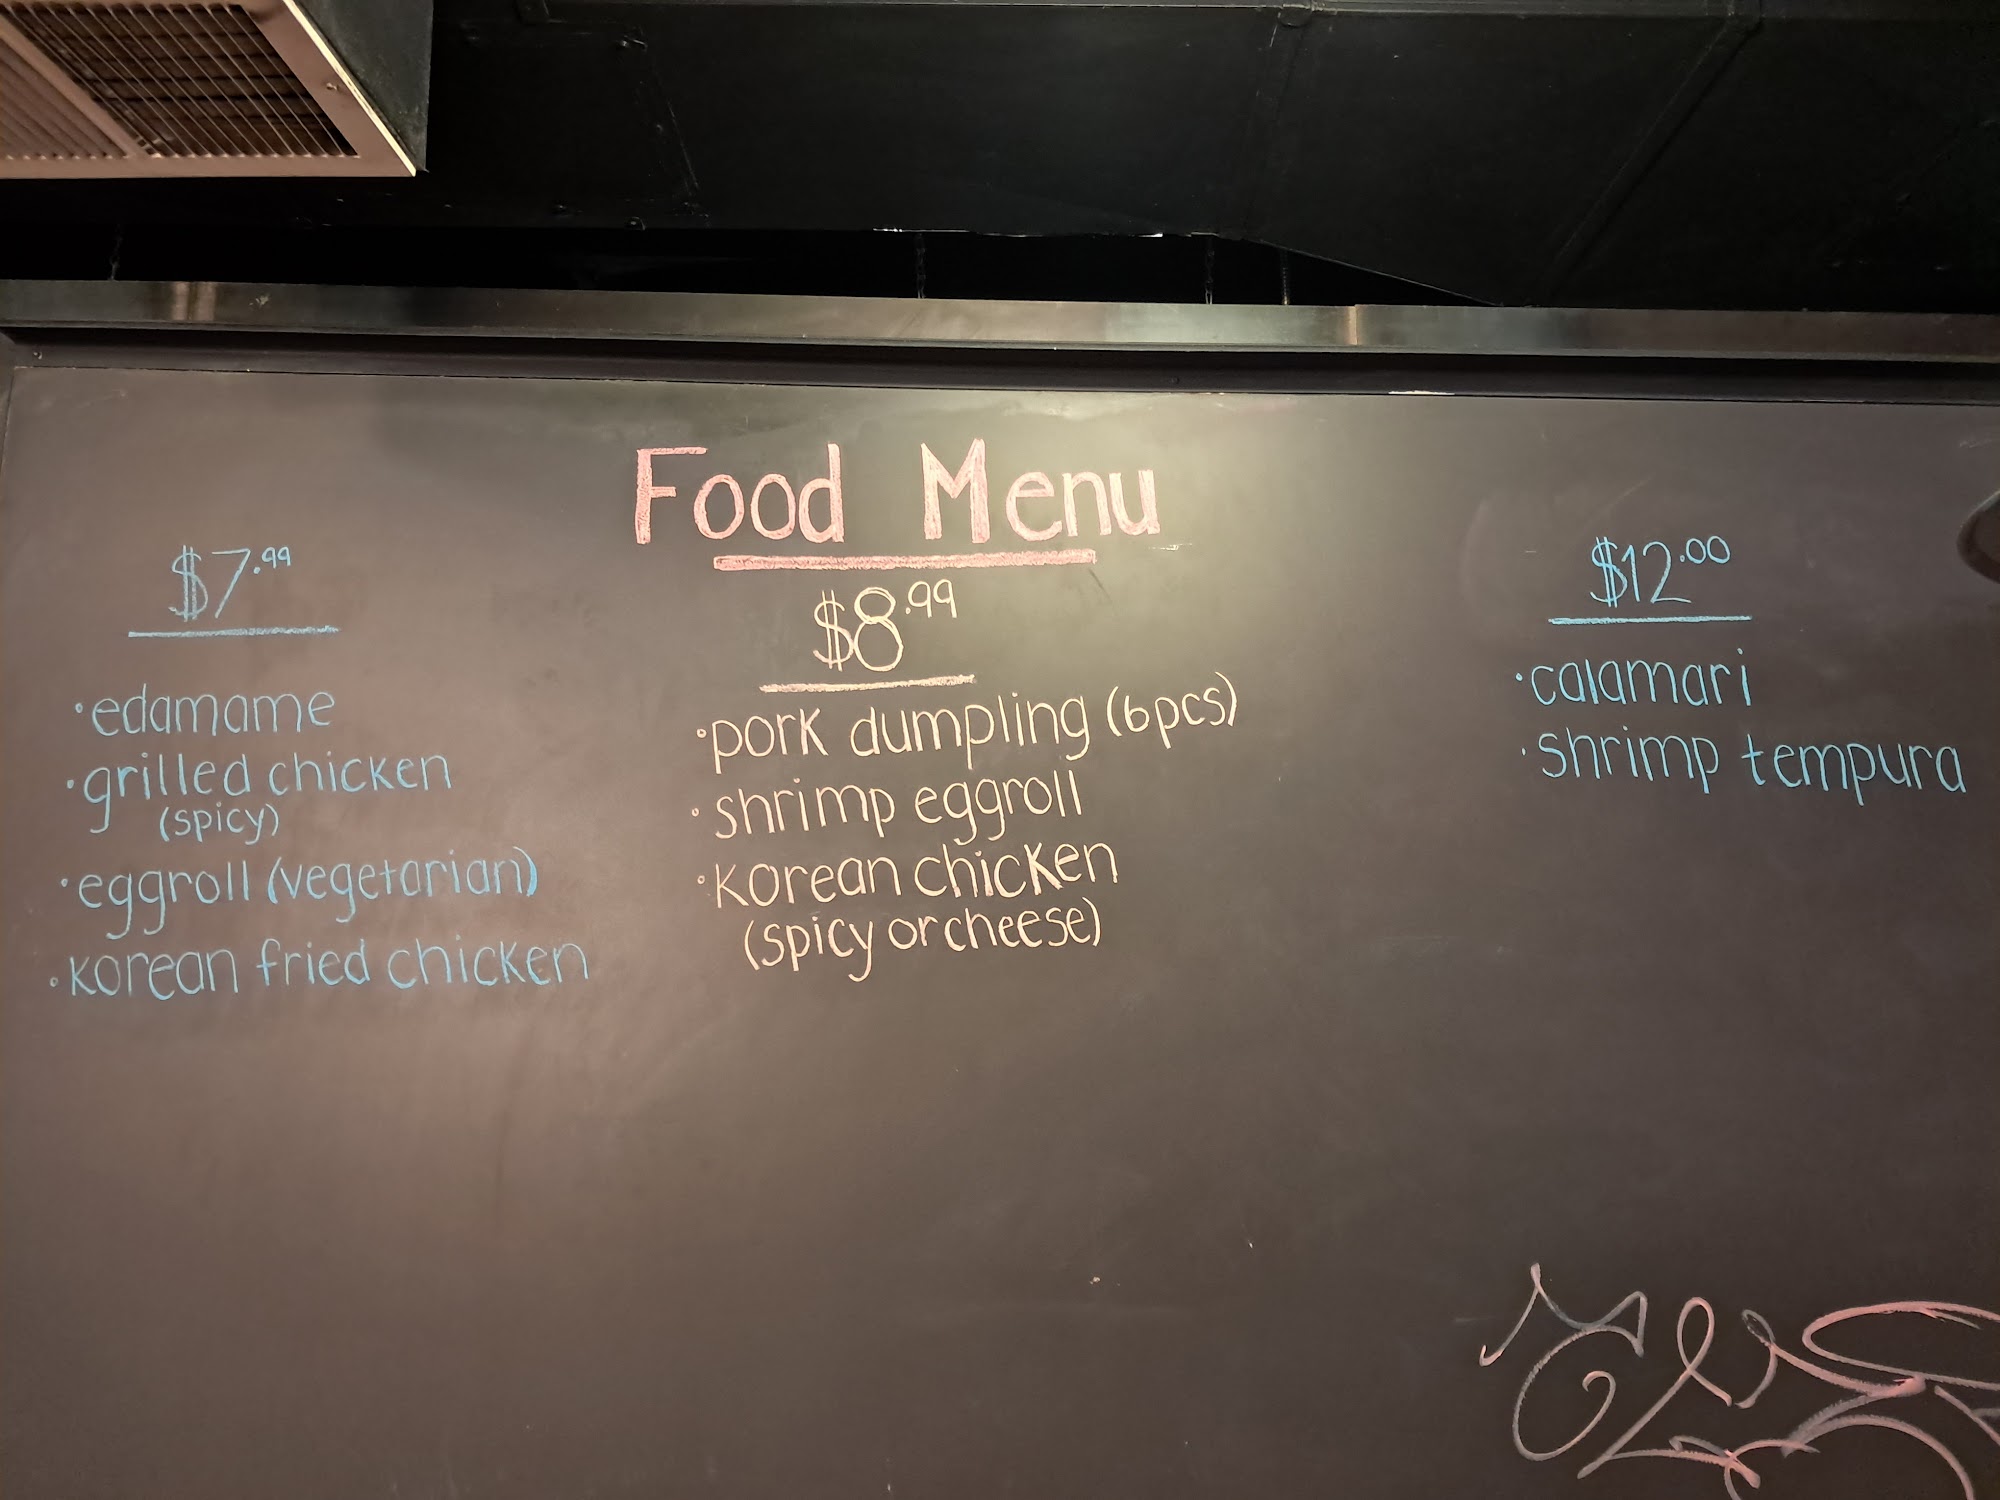 Food Menu
$7.99
·edamame
·grilled chicken
(spicy)
·eggroll (vegetarian)
·Korean fried chicken
$8.99
·pork dumpling (6pcs)
·shrimp eggroll
·Korean chicken
(spicy or cheese)
$12.00
·calamari
·shrimp tempura